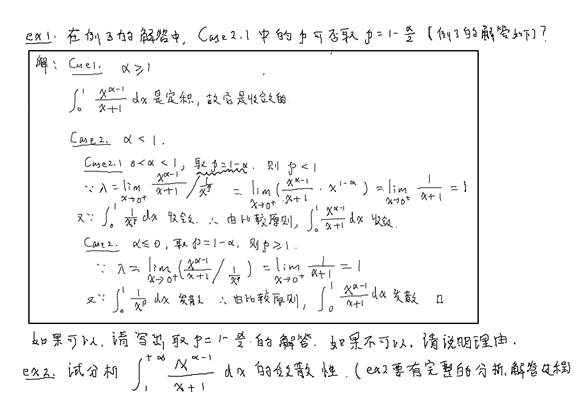 ex1. 在例3的解答中, Case2.1 中的 p 可否取 p=1-α/2 【例3的解答如下】?
解: Case1. α≥1
∫_0^1 x^{α-1}/(x+1) dx 是定积, 故它是收敛的
Case2. α<1.
Case2.1 0<α<1, 取 p=1-α. 则 p<1
∵ λ=lim_{x→0+} x^{α-1}/(x+1) / 1/x^p = lim_{x→0+} (x^{α-1}/(x+1) · x^{1-α}) = lim_{x→0+} 1/(x+1) = 1
又∵ ∫_0^1 1/x^p dx 收敛. ∴ 由比较原则, ∫_0^1 x^{α-1}/(x+1) dx 收敛.
Case2. α≤0, 取 p=1-α, 则 p≥1.
∵ λ=lim_{x→0+} (x^{α-1}/(x+1) / 1/x^p) = lim_{x→0+} 1/(x+1) = 1
又∵ ∫_0^1 1/x^p dx 发散 ∴ 由比较原则, ∫_0^1 x^{α-1}/(x+1) dx 发散 □
如果可以, 请写出取 p=1-α/2 的解答. 如果不可以, 请说明理由.
ex2. 试分析 ∫_1^{+∞} x^{α-1}/(x+1) dx 的敛散性. (ex2要有完整的分析, 解答过程)